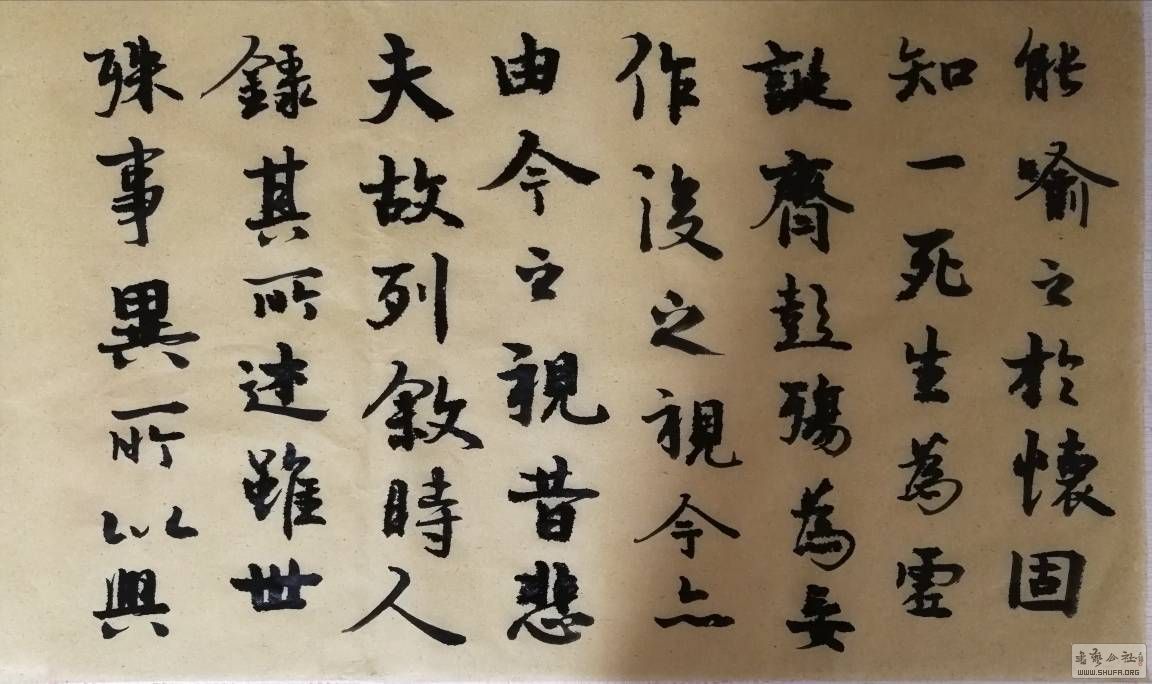 能喻之於懷固
知一死生為虛
誕齊彭殤為妄
作後之視今亦
由今之視昔悲
夫故列敘時人
錄其所述雖世
殊事異所以興
書藝公社
WWW.SHUFA.ORG